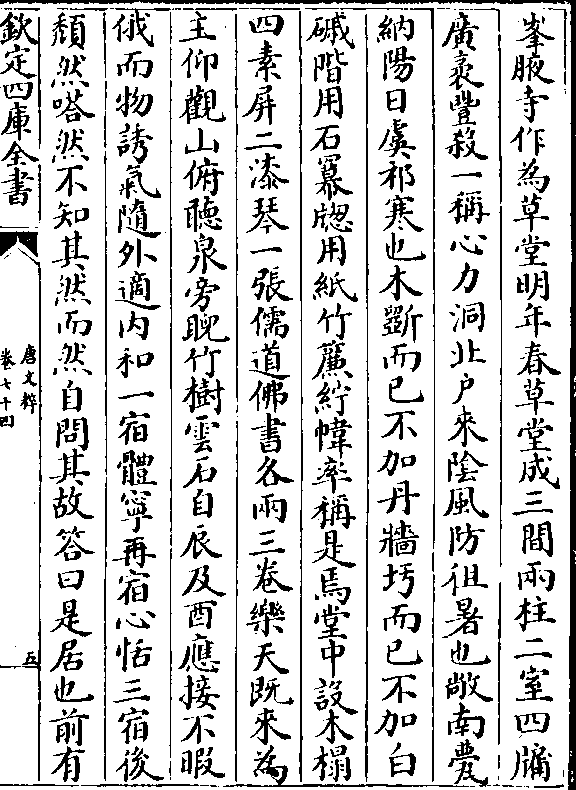 峯腋寺作為草堂明年春草堂成三間兩柱二室四牖
廣袤豐殺一稱心力洞北户來陰風防徂暑也敞南甍
納陽日虞祁寒也木斵而已不加丹牆圬而已不加白
磩階用石羃牕用紙竹簾紵幃率稱是焉堂中設木榻
四素屏二漆琴一張儒道佛書各兩三卷樂天既來為
主仰觀山俯聽泉旁睨竹樹雲石自辰及酉應接不暇
俄而物誘氣隨外適内和一宿體寧再宿心恬三宿後
頽然嗒然不知其然而然自問其故答曰是居也前有
欽定四庫全書
唐文粹
卷七十四
五